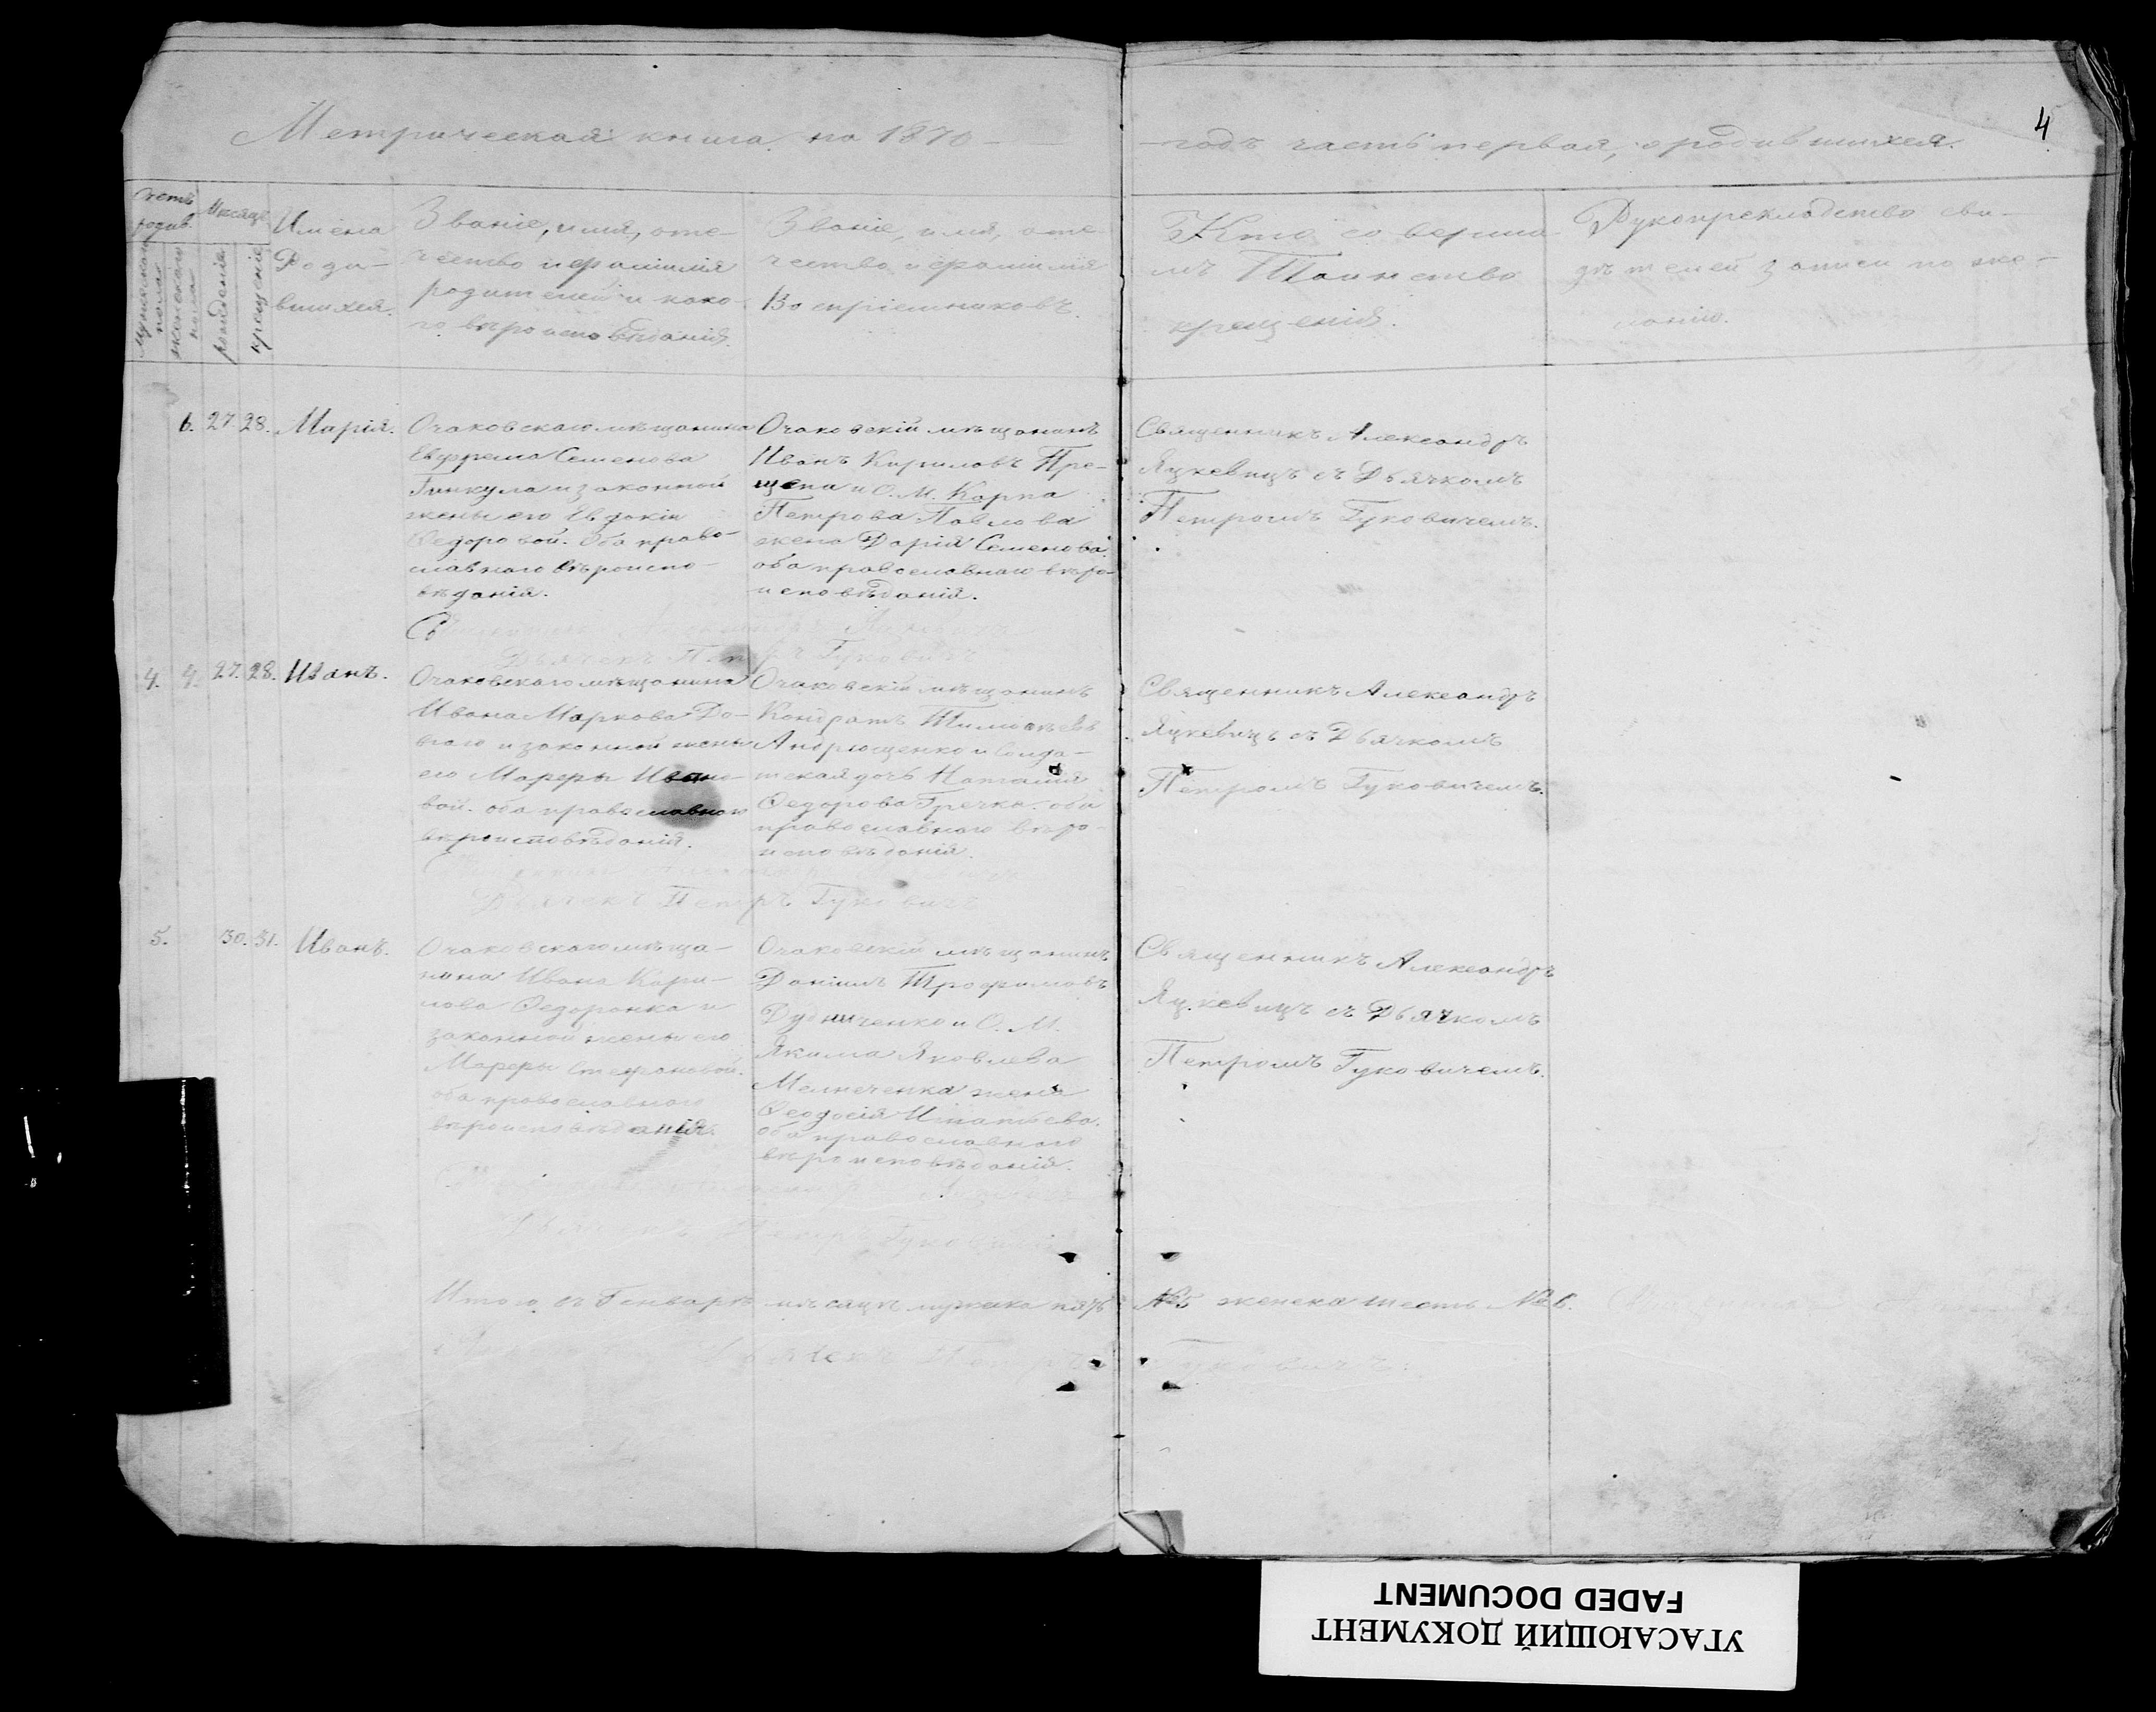 Метрическая книга на 1870 -
- годъ часть первая, о родившихся.
4
Счетъ
родив.
Мужескаго
пола
женскаго
пола
Месяцъ
рожденія
крещенія
Имена
Роди-
вшихся.
Званіе, имя, оте-
чество и фамилія
родителей и како-
го вѣроисповѣданія.
Званіе, имя, оте-
чество и фамилія
Воспріемниковъ.
Кто соверши-
лъ Таинство
крещенія.
Рукоприкладство сви-
дѣтелей записи по же-
ланію.
6. 27. 28. Марія.
Очаковскаго мѣщанина
Евфрема Семенова
Гинкула и законной
жены его Евдокіи
Федоровой. Оба право-
славнаго вѣроиспо-
вѣданія.
Очаковскій мѣщанинъ
Иванъ Кириловъ Пре-
щепа и О. М. Карпа
Петрова Павлова
жена Дарія Семенова.
оба православнаго вѣро-
исповѣданія.
Священникъ Александръ
Яцкевицъ съ Дьячкомъ
Петромъ Гуковичемъ.
Дьячекъ Петръ Гуковичъ
4. 4. 27. 28. Иванъ.
Очаковскаго мѣщанина
Ивана Маркова До-
вгаго и законной жены
его Марфы Ивано-
вой. оба православнаго
вѣроисповѣданія.
Очаковскій мѣщанинъ
Кондратъ Тимофѣевъ
Андрющенко и Солда-
тская дочь Наталія
Федорова Гречка. оба
православнаго вѣро-
исповѣданія.
Священникъ Александръ
Яцкевицъ съ Дьячкомъ
Петромъ Гуковичемъ.
Дьячекъ Петръ Гуковичъ
5. 30. 31. Иванъ.
Очаковскаго мѣща-
нина Ивана Кири-
лова Федоранка и
законной жены его
Марфы Стефановой.
оба православнаго
вѣроисповѣданія.
Очаковскій мѣщанинъ
Даніилъ Трофимовъ
Дудниченко и О. М.
Якима Яковлева
Мелниченка жена
Феодосія Игнатьева.
оба православнаго
вѣроисповѣданія.
Священникъ Александръ
Яцкевицъ съ Дьячкомъ
Петромъ Гуковичемъ.
Дьячекъ Петръ Гуковичъ
Итого въ Генварѣ мѣсяцѣ мужска пять
№5 женска шесть №6.
Дьячекъ Петръ
Гуковичъ.
УГАСАЮЩИЙ ДОКУМЕНТ
FADED DOCUMENT